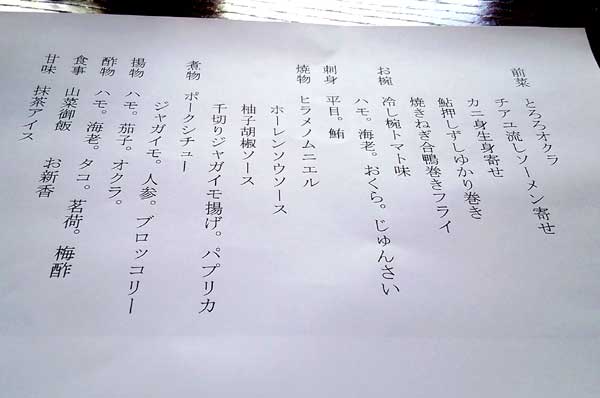 前菜 とろろオクラ
チアユ流しソーメン寄せ
カニ身生身寄せ
鮎押しずしゆかり巻き
焼きねぎ合鴨巻きフライ
お椀 冷し椀トマト味
ハモ。海老。おくら。じゅんさい
刺身 平目。鮪
焼物 ヒラメノムニエル
ホーレンソウソース
柚子胡椒ソース
千切りジャガイモ揚げ。パプリカ
煮物 ポークシチュー
ジャガイモ。人参。ブロッコリー
揚物 ハモ。茄子。オクラ。
酢物 ハモ。海老。タコ。茗荷。梅酢
食事 山菜御飯 お新香
甘味 抹茶アイス